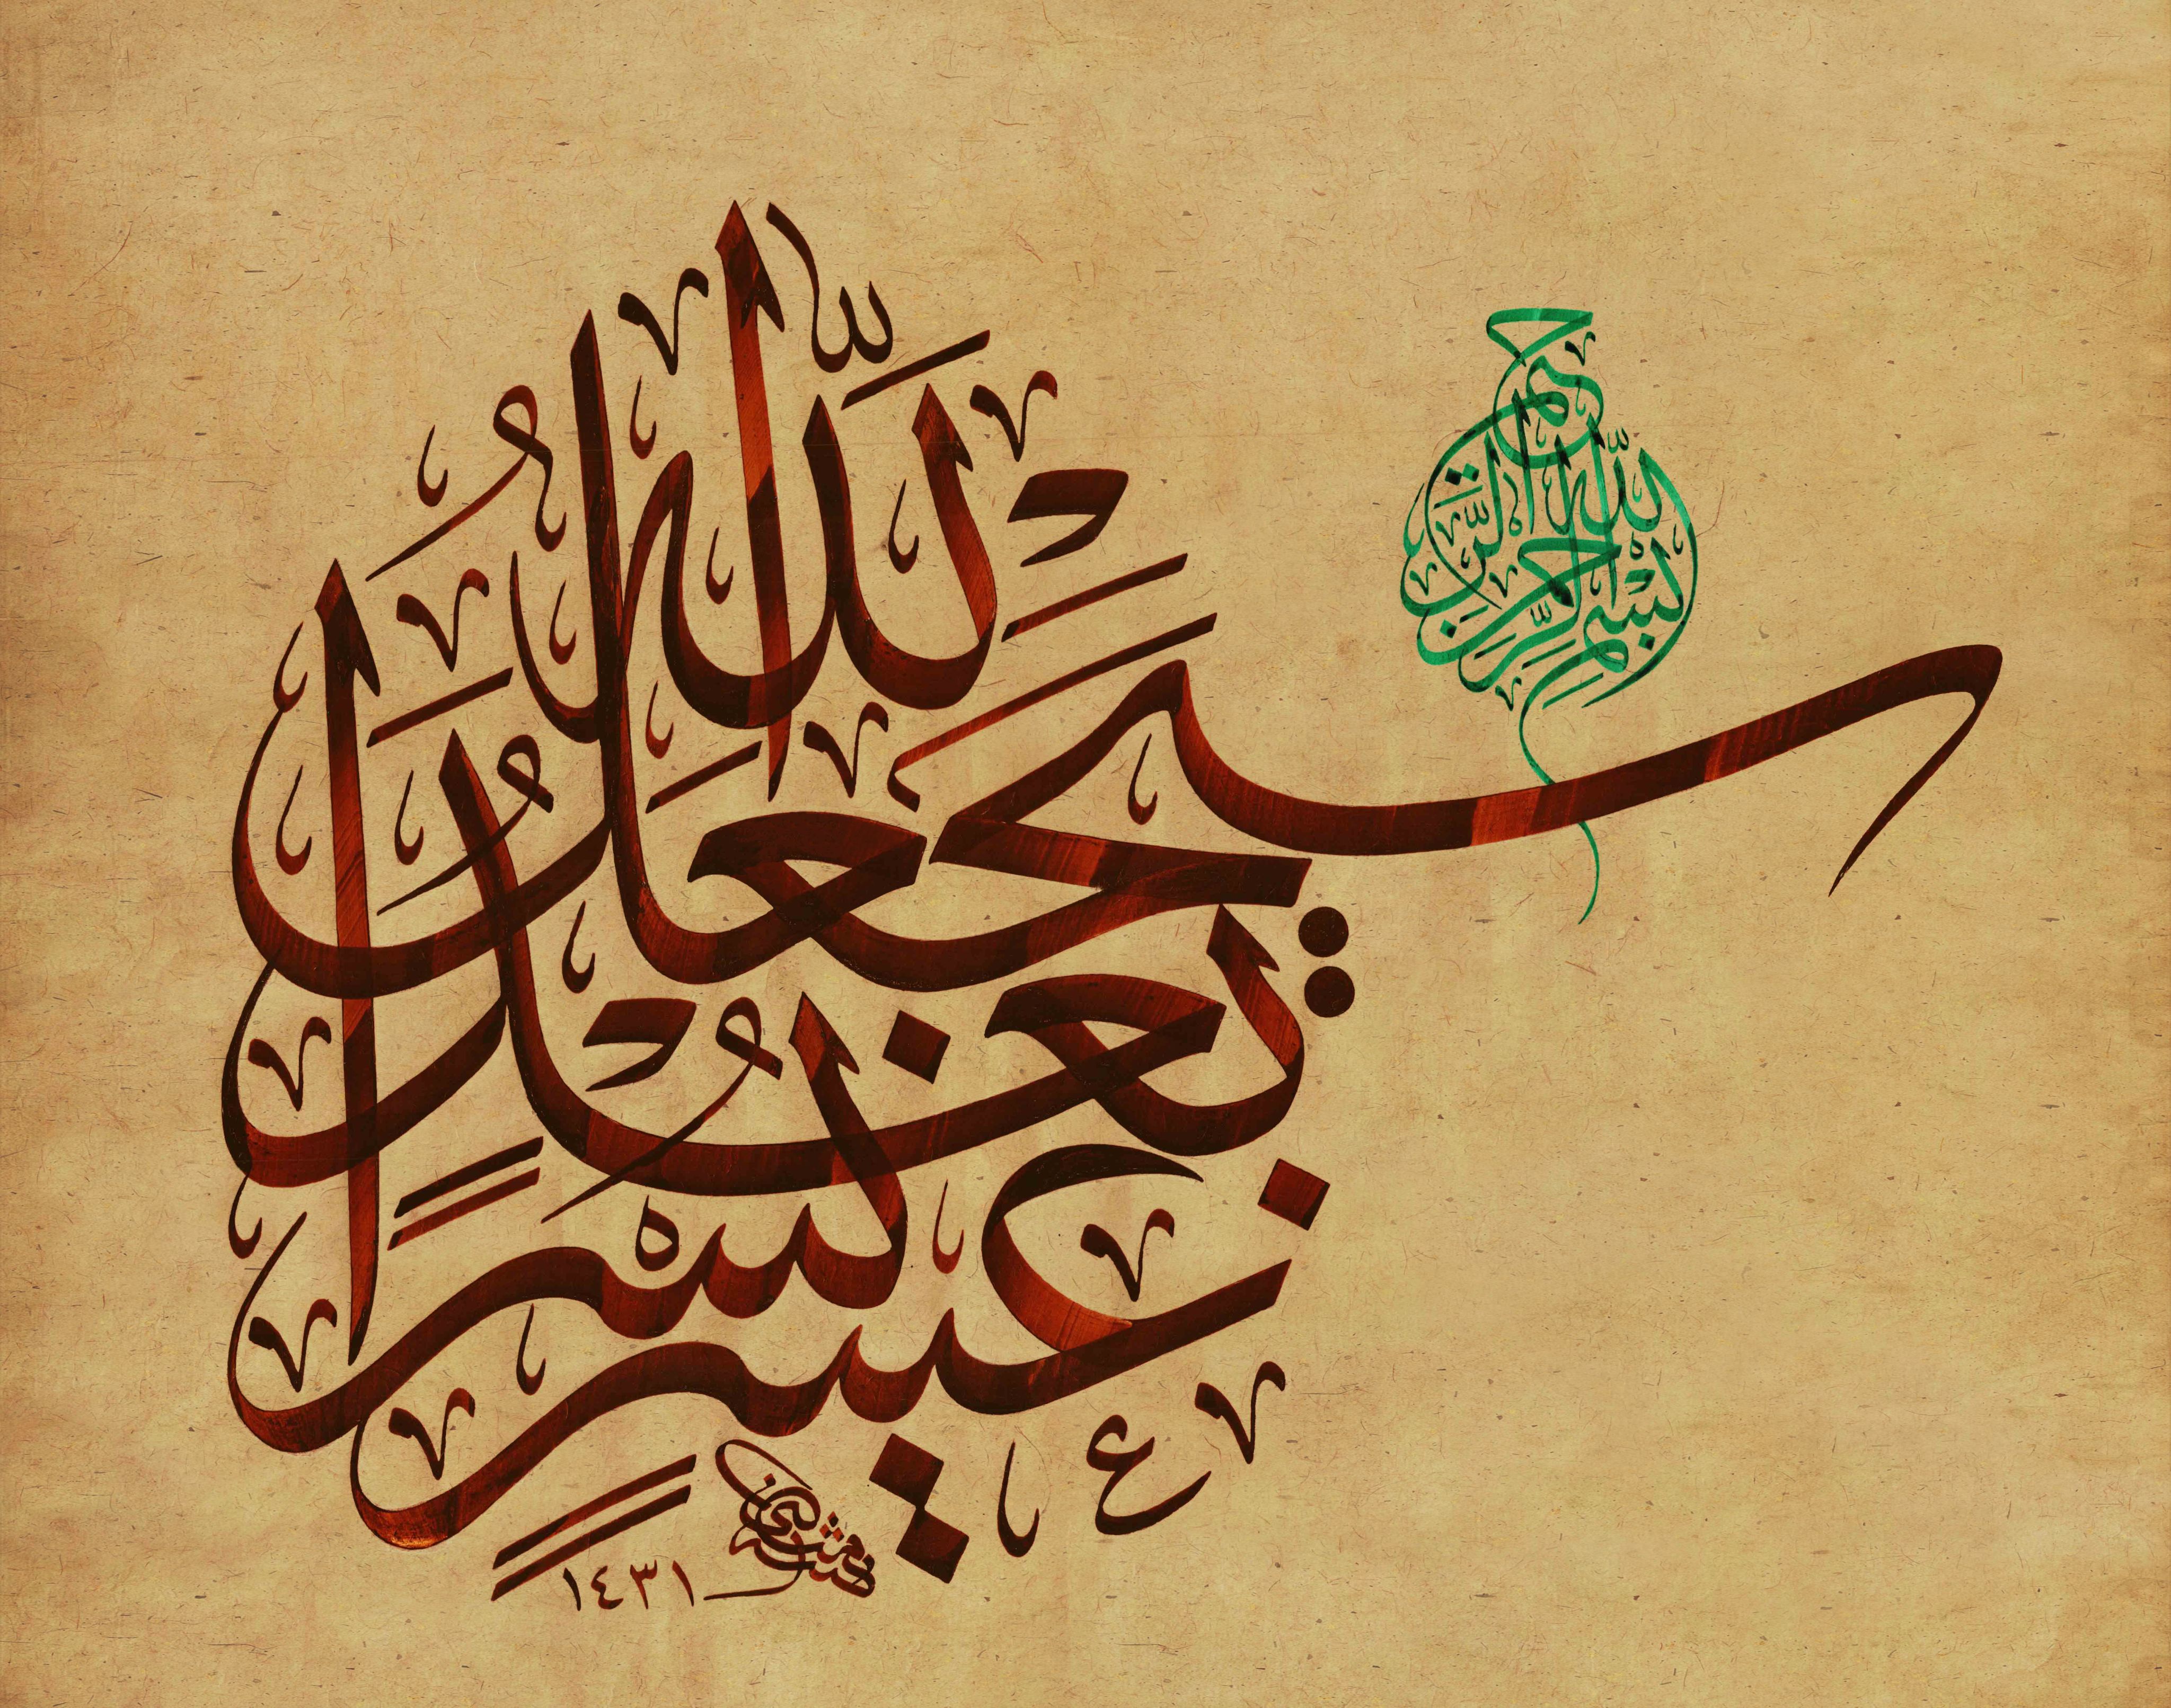 بِسْمِ اللّٰهِ الرَّحْمٰنِ الرَّحِيمِ
سَيَجْعَلُ اللّٰهُ
بَعْدَ
عُسْرٍ يُسْرًا
١٤٣١